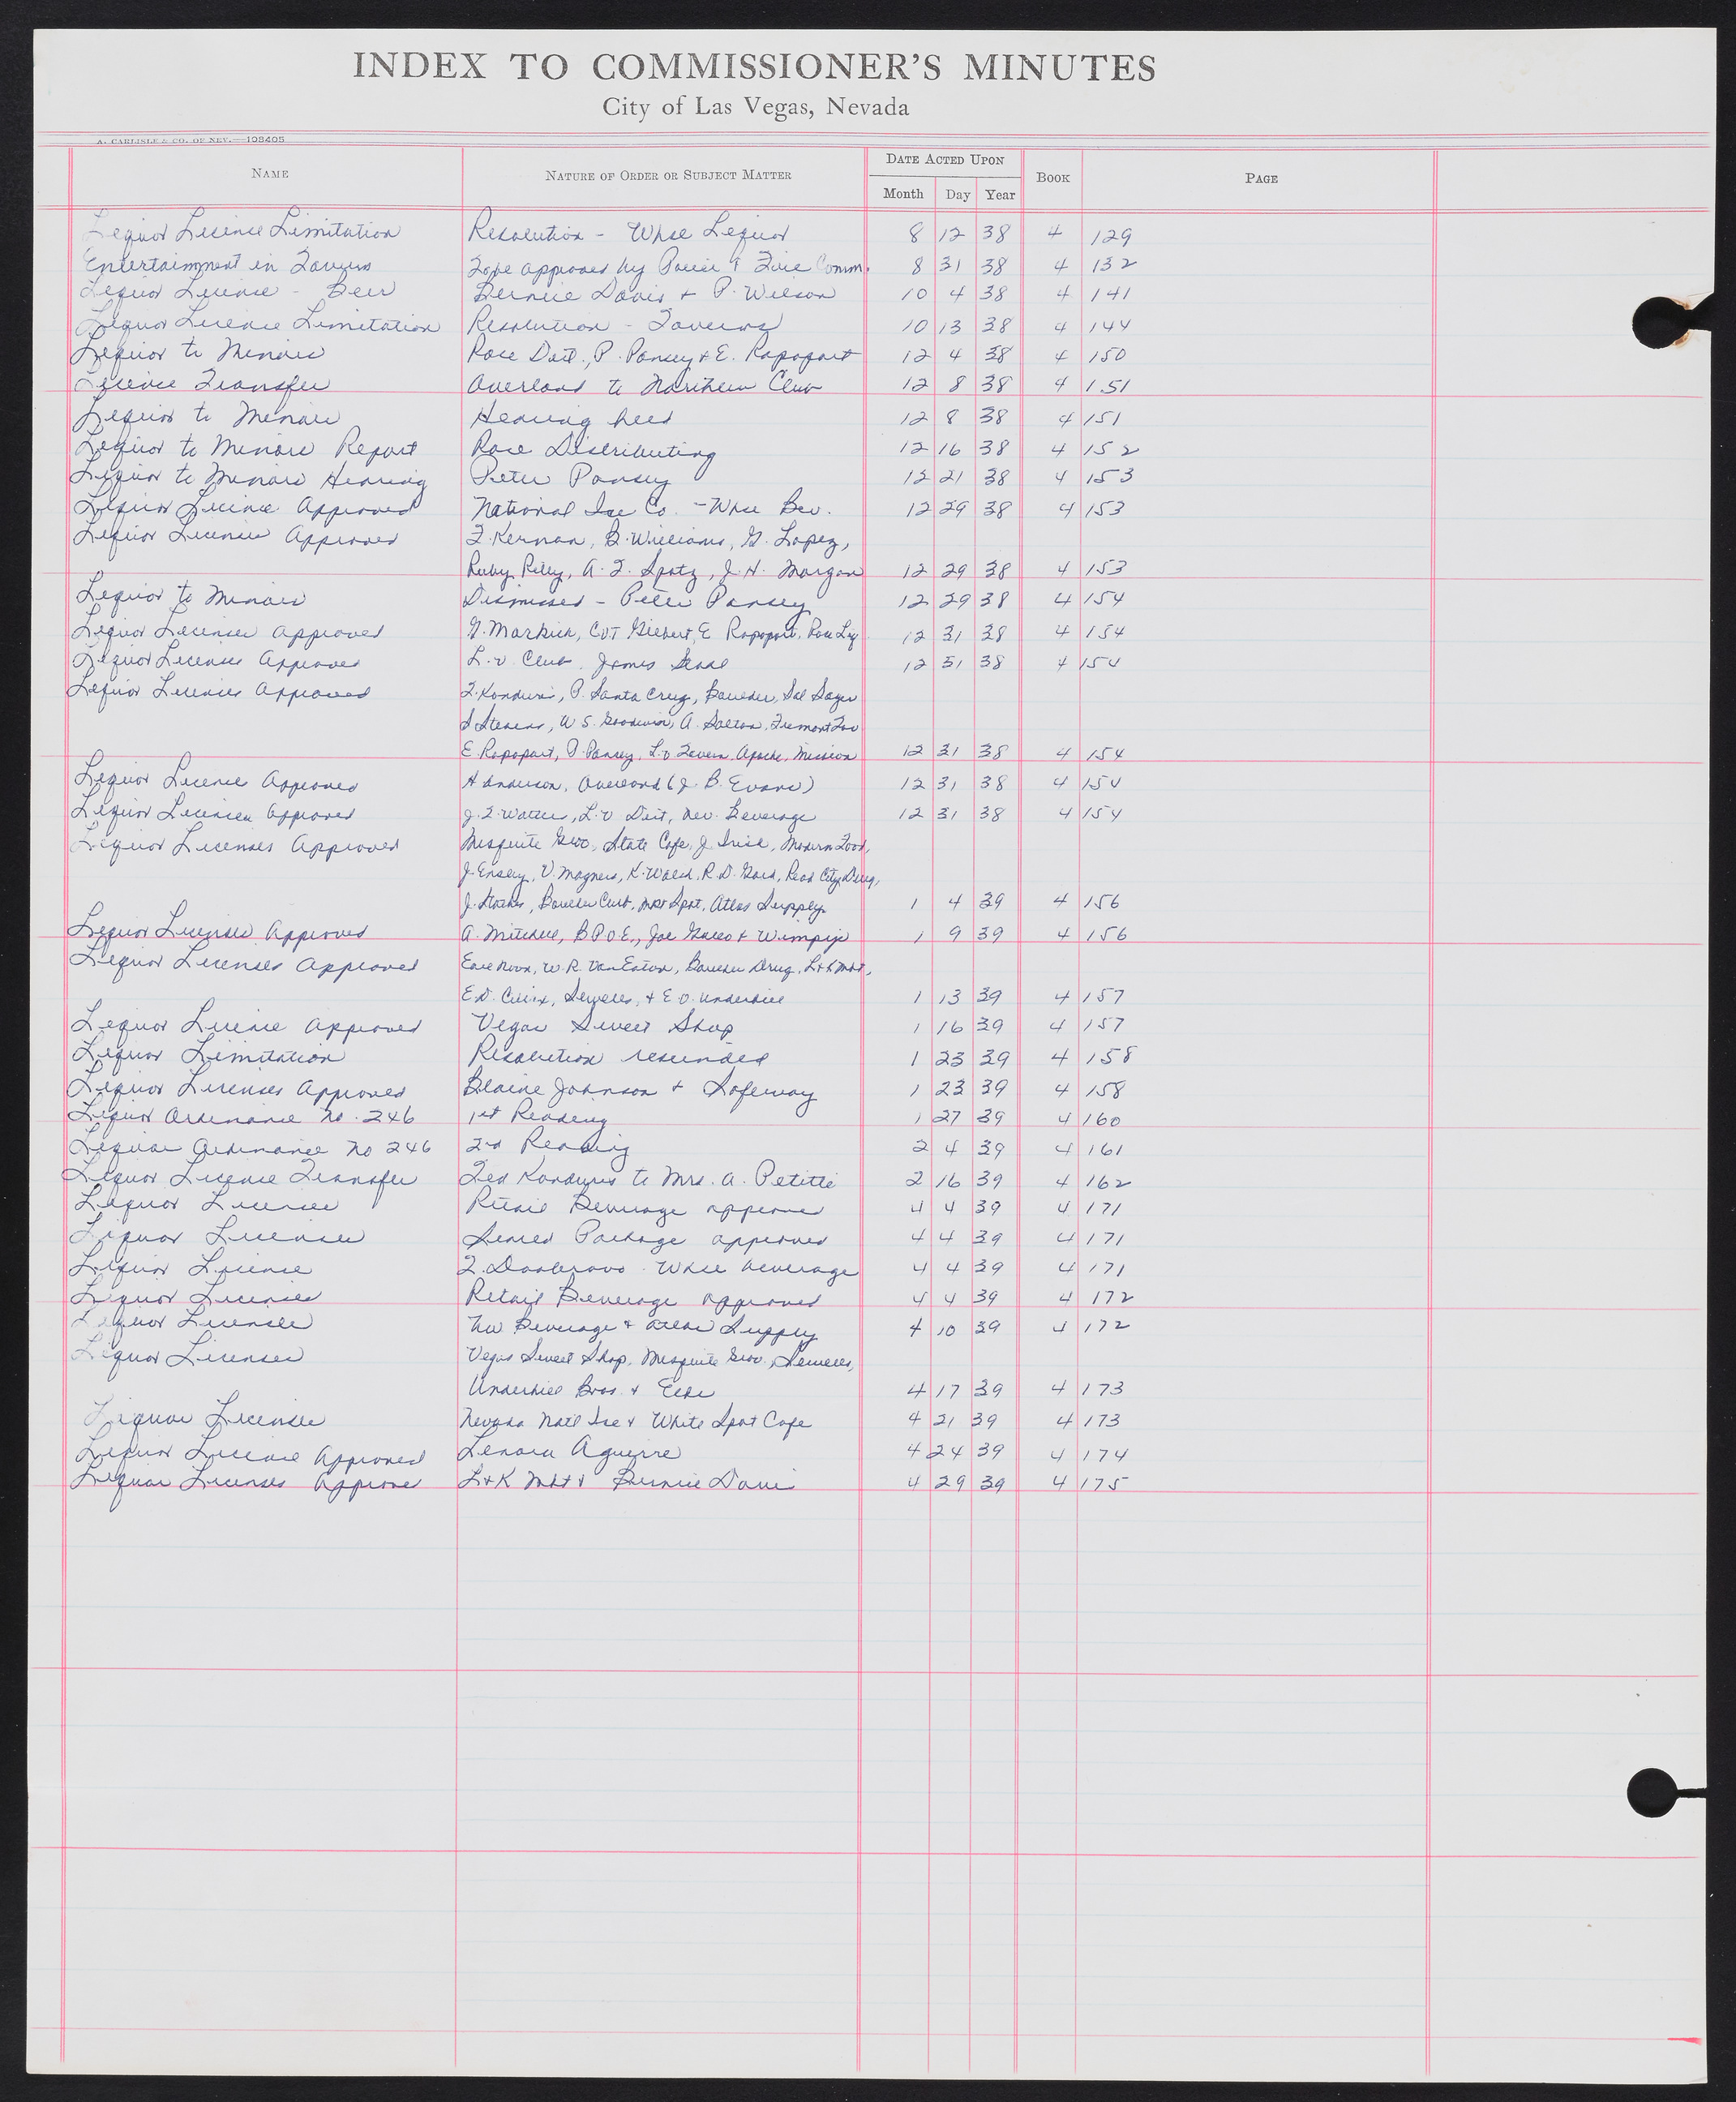 INDEX TO COMMISSIONER'S MINUTES
City of Las Vegas, Nevada
A. CARLISLE & CO. OF NEV.—108405
NAME NATURE OF ORDER OR SUBJECT MATTER DATE ACTED UPON BOOK PAGE
Month Day Year
Liquor License Limitation Resolution - Whse Liquor 8 12 38 4 129
Entertainment in Taverns To be approved by Police & Fire Comm. 8 31 38 4 132
Liquor License - Beer Bernice Davis + P. Wilson 10 4 38 4 141
Liquor License Limitation Resolution - Taverns 10 13 38 4 144
Liquor to Minors Rose Dist., P. Pansey & E. Rapoport 12 4 38 4 150
License Transfer Overland to Northern Club 12 8 38 4 151
Liquor to Minors Hearing held 12 8 38 4 151
Liquor to Minors Report Rose Distributing 12 16 38 4 152
Liquor to Minors Hearing Peter Pansey 12 21 38 4 153
Liquor License Approved National Ice Co. - Whse Bev. 12 29 38 4 153
Liquor Licenses Approved F. Kernan, B. Williams, G. Lopez,
Ruby Riley, A. F. Spatz, J. H. Morgan 12 29 38 4 153
Liquor to Minors Dismissed - Peter Pansey 12 29 38 4 154
Liquor Licenses Approved G. Markich, CVT Gilbert, E Rapoport, Rose Liq 12 31 38 4 154
Liquor Licenses Approved L.V. Club, James Seale 12 31 38 4 154
Liquor Licenses Approved T. Konduris, P. Santa Cruz, Boulder, Sal Sagev
S Stevens, W S. Goodwin, A. Salton, Fremont Tav
E. Rapoport, P. Pansey, L.V Tavern, Apache, Mission 12 31 38 4 154
Liquor License Approved H Anderson, Overland (J. B. Evans) 12 31 38 4 154
Liquor Licenses Approved J. F. Watters, L.V Dist, Nev. Beverage 12 31 38 4 154
Liquor Licenses Approved Mesquite Groc, State Cafe, J. Irish, Modern Food,
J. Ensley, V. Magness, K. Walsh, R. D. Gard, Read City Drug,
J. Stocker, Boulder Club, Mkt Spot, Atlas Supply 1 4 39 4 156
Liquor Licenses Approved A. Mitchell, B.P.O.E., Joe Greco & Wimpys 1 9 39 4 156
Liquor Licenses Approved Earl Noon, W. R. Van Eaton, Boulder Drug, L+K Mkt,
E.D. Clinx, Sewells, + E.O. Underhill 1 13 39 4 157
Liquor License Approved Vegas Sweet Shop 1 16 39 4 157
Liquor Limitation Resolution rescinded 1 23 39 4 158
Liquor Licenses Approved Blaine Johnson + Safeway 1 23 39 4 158
Liquor Ordinance No. 246 1st Reading 1 27 39 4 160
Liquor Ordinance No 246 2nd Reading 2 4 39 4 161
Liquor License Transfer Ted Konduris to Mrs. A. Petitti 2 16 39 4 162
Liquor Licenses Retail Beverage approved 4 4 39 4 171
Liquor Licenses Sealed Package approved 4 4 39 4 171
Liquor License Whse beverage 4 4 39 4 171
Liquor Licenses Retail Beverage approved 4 4 39 4 172
Liquor Licenses Nev Beverage & Atlas Supply 4 10 39 4 172
Liquor Licenses Vegas Sweet Shop, Mesquite Groc, Sewells,
Underhill Bros. & Elks 4 17 39 4 173
Liquor Licenses Nevada Natl Ice & White Spot Cafe 4 21 39 4 173
Liquor License Approved Lenora Aguirre 4 24 39 4 174
Liquor Licenses Approved L+K Mkt & Bernice Davis 4 29 39 4 175